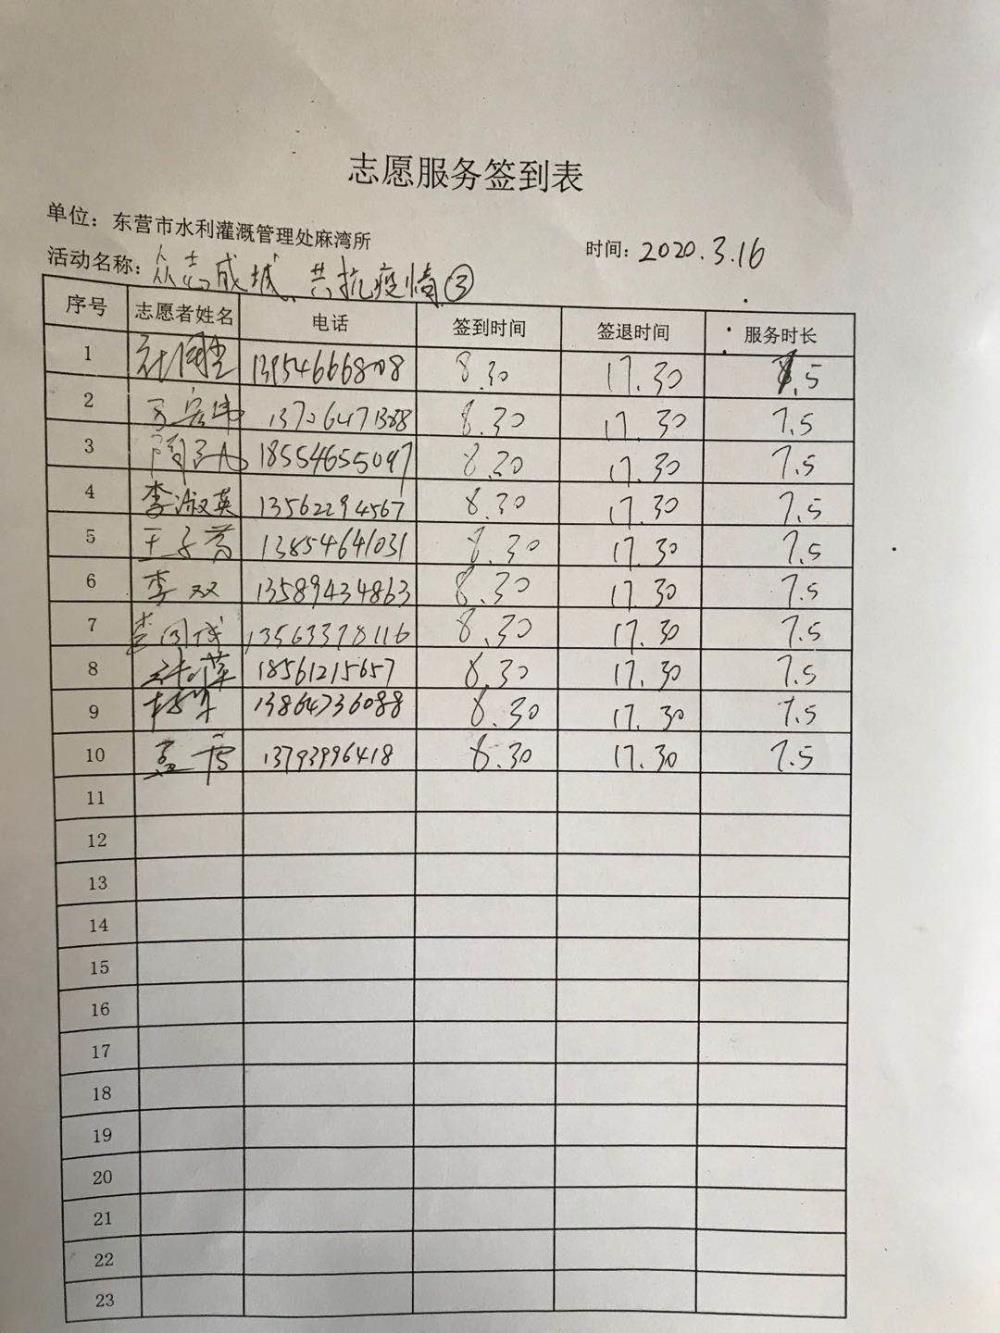 志愿服务签到表
单位：东营市水利灌溉管理处麻湾所
时间：2020.3.16
活动名称：众志成城、共抗疫情③
序号 志愿者姓名 电话 签到时间 签退时间 服务时长
1 13954666808 8.30 17.30 7.5
2 13706471388 8.30 17.30 7.5
3 18554655097 8.30 17.30 7.5
4 李淑英 13562294567 8.30 17.30 7.5
5 王子芳 13854641031 8.30 17.30 7.5
6 李双 13589434863 8.30 17.30 7.5
7 李国成 13563378116 8.30 17.30 7.5
8 18561215657 8.30 17.30 7.5
9 13864736088 8.30 17.30 7.5
10 孟雪 13793996418 8.30 17.30 7.5
11
12
13
14
15
16
17
18
19
20
21
22
23